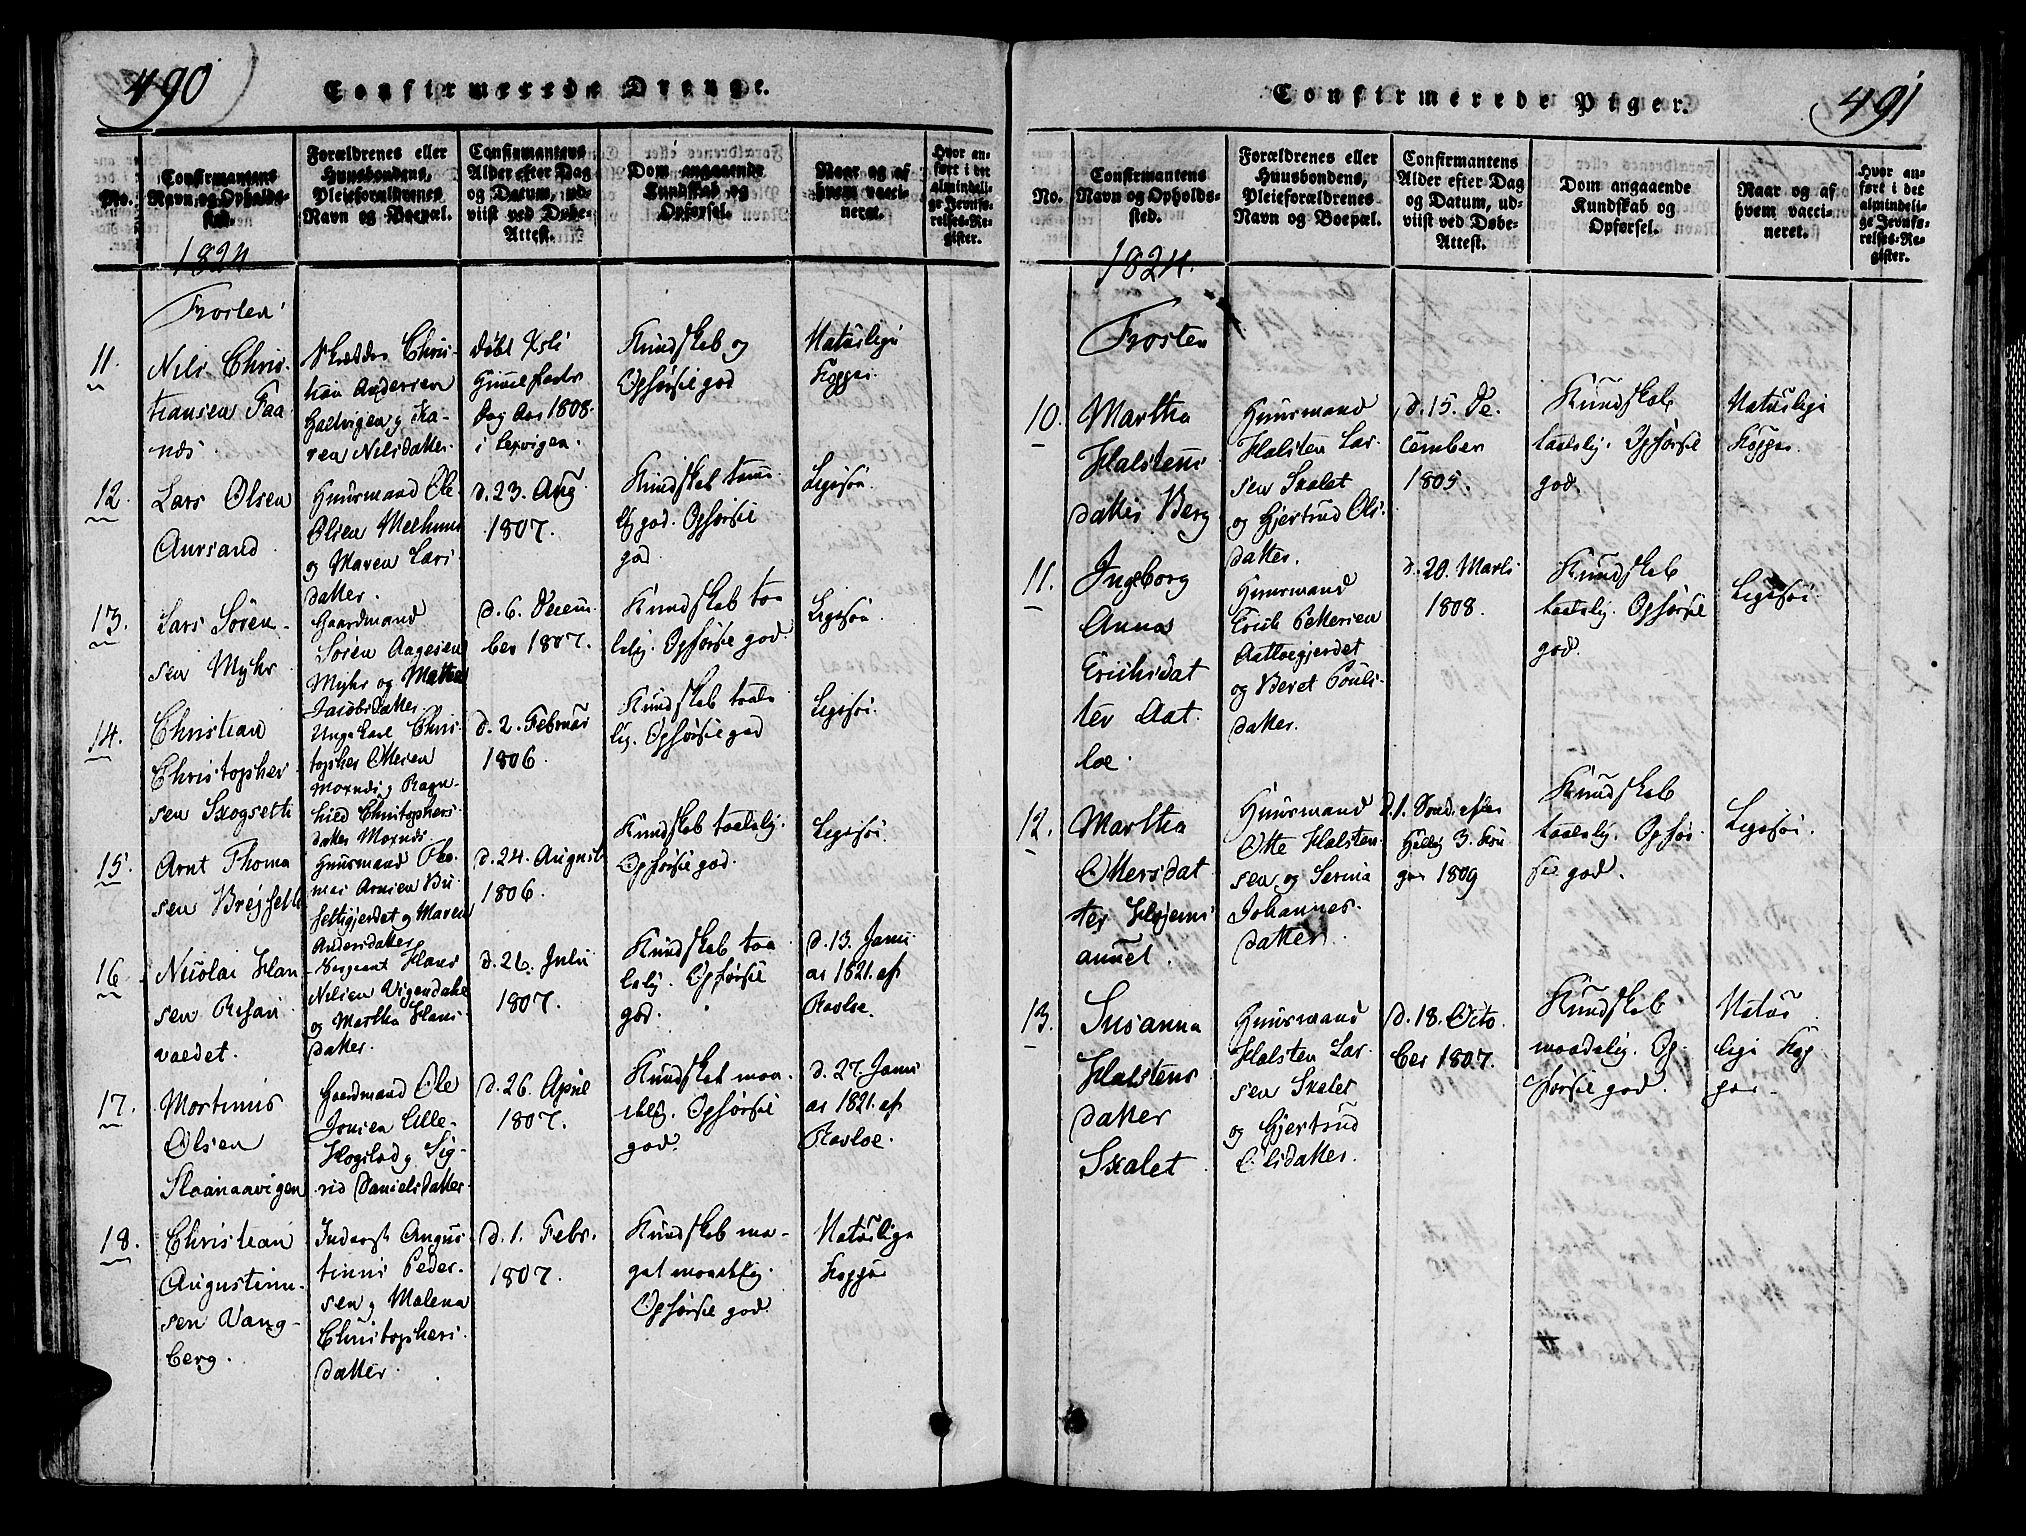 490
Confirmerede Drenge.
No.
Confirmantens
Navn og Opholds-
sted.
Forældrenes eller
Huusbondens,
Pleieforældrenes
Navn og Boepæl.
Confirmantens
Alder efter Dag
og Datum, ud-
viist ved Døbe-
Attest.
Dom angaaende
Kundskab og
Opførsel.
Naar og af
hvem vacci-
neret.
Hvor an-
ført i det
almindeli-
ge Jevnfø-
relses-Re-
gister.
1824
Frosten
11.
Nils Chris-
tiansen Faa-
næs.
Chris-
tian Andersen
og Ka-
ren Nilsdatter.
døbt
Dag Aar 1808.
i Lexvigen.
Kundskab og
Opførsel god
Naturlige
Kopper.
12.
Lars Olsen
Aursand.
Huusmand Ole
Olsen Melhuus
og Maren Lars-
datter.
d. 23. Aug
1807.
Kundskab tem
lig god. Opførsel
god.
Ligesøn.
13.
Lars Sören-
sen Myhr
Gaardmand
Sören Aagesen
Myhr og
Jacobsdatter
d. 6. Decem
ber 1807.
Kundskab taa
lelig. Opførsel god.
Ligesøn.
14.
Christian
Christopher-
sen Skogsett
Ungekarl Chris-
topher Ottesen
Moxnes og Ragn-
hild Christophers-
datter Moxnes.
d. 2. Februar
1806.
Kundskab taale
lig. Opførsel god
Ligesø.
15.
Arnt Thoma
sen
Huusmand Tho-
mas Arnsen
og Maren
Andersdatter
d. 24. August
1806.
Kundskab taalelig.
Opførsel god.
Ligesø.
16
Nicolai Han
sen
valdet.
Sergeant Hans
Nilsen
og Martha Hans-
datter.
d. 26. Julii
1807.
Kundskab taa
lelig. Opførsel
god.
d. 13. Janu
ar 1821. af
Ravloe.
17.
Mortinus
Olsen
Gaardmand Ole
Jonsen Lille-
og Sig-
rid Danielsdatter.
d. 26. April
1807.
Kundskab maa-
delig. Opførsel
god.
d. 27. Janu
ar 1821. af
Ravloe.
18.
Christian
Augustinu-
sen Vang-
berg.
Augus-
tinus Peder-
sen og Malena
Christophers-
datter.
d. 1. Febr.
1807.
Kundskab me-
get maadelig.
Opførsel god.
Naturlige
Kopper
491
Confirmerede Piger.
No.
Confirmantens
Navn og Opholds-
sted.
Forældrenes eller
Huusbondens,
Pleieforældrenes
Navn og Boepæl.
Confirmantens
Alder efter Dag
og Datum, ud-
viist ved Døbe-
Attest.
Dom angaaende
Kundskab og
Opførsel.
Naar og af
hvem vacci-
neret.
Hvor an-
ført i det
almindeli-
ge Jevnfø-
relses-Re-
gister.
1824.
Frosten
10.
Martha
Halstens
datter Berg
Huusmand
Halsten Lar-
sen Skalet
og Gjertrud Ols-
datter.
d. 15. De-
cember
1805.
Kundskab
taalelig. Opførsel
god.
Naturlige
Kopper.
11.
Ingeborg
Anna
Erichsdat
ter Aat-
loe.
Huusmand
Erich Pettersen
Aatloegjerdet
og Beret Pouls-
datter.
d. 20. Marts
1808.
Kundskab
taalelig. Opførsel
god.
Ligesø.
12.
Martha
Ottersdat
ter Hojem
aunet.
Huusmand
Otte Halsten-
sen og Serina
Johannes-
datter.
d. 1. Sønd. efter
Hellig 3. Kon
ger 1809
Kundskab
taalelig. Opfør-
sel god.
Ligesø.
13.
Susanna
Halstens
datter
Skalet
Huusmand
Halsten Lar-
sen Skalet
og Gjertrud
Olsdatter.
d. 18. Octo
ber 1807.
Kundskab
maadelig. Op-
førsel god.
Natur
lige Kop
per.